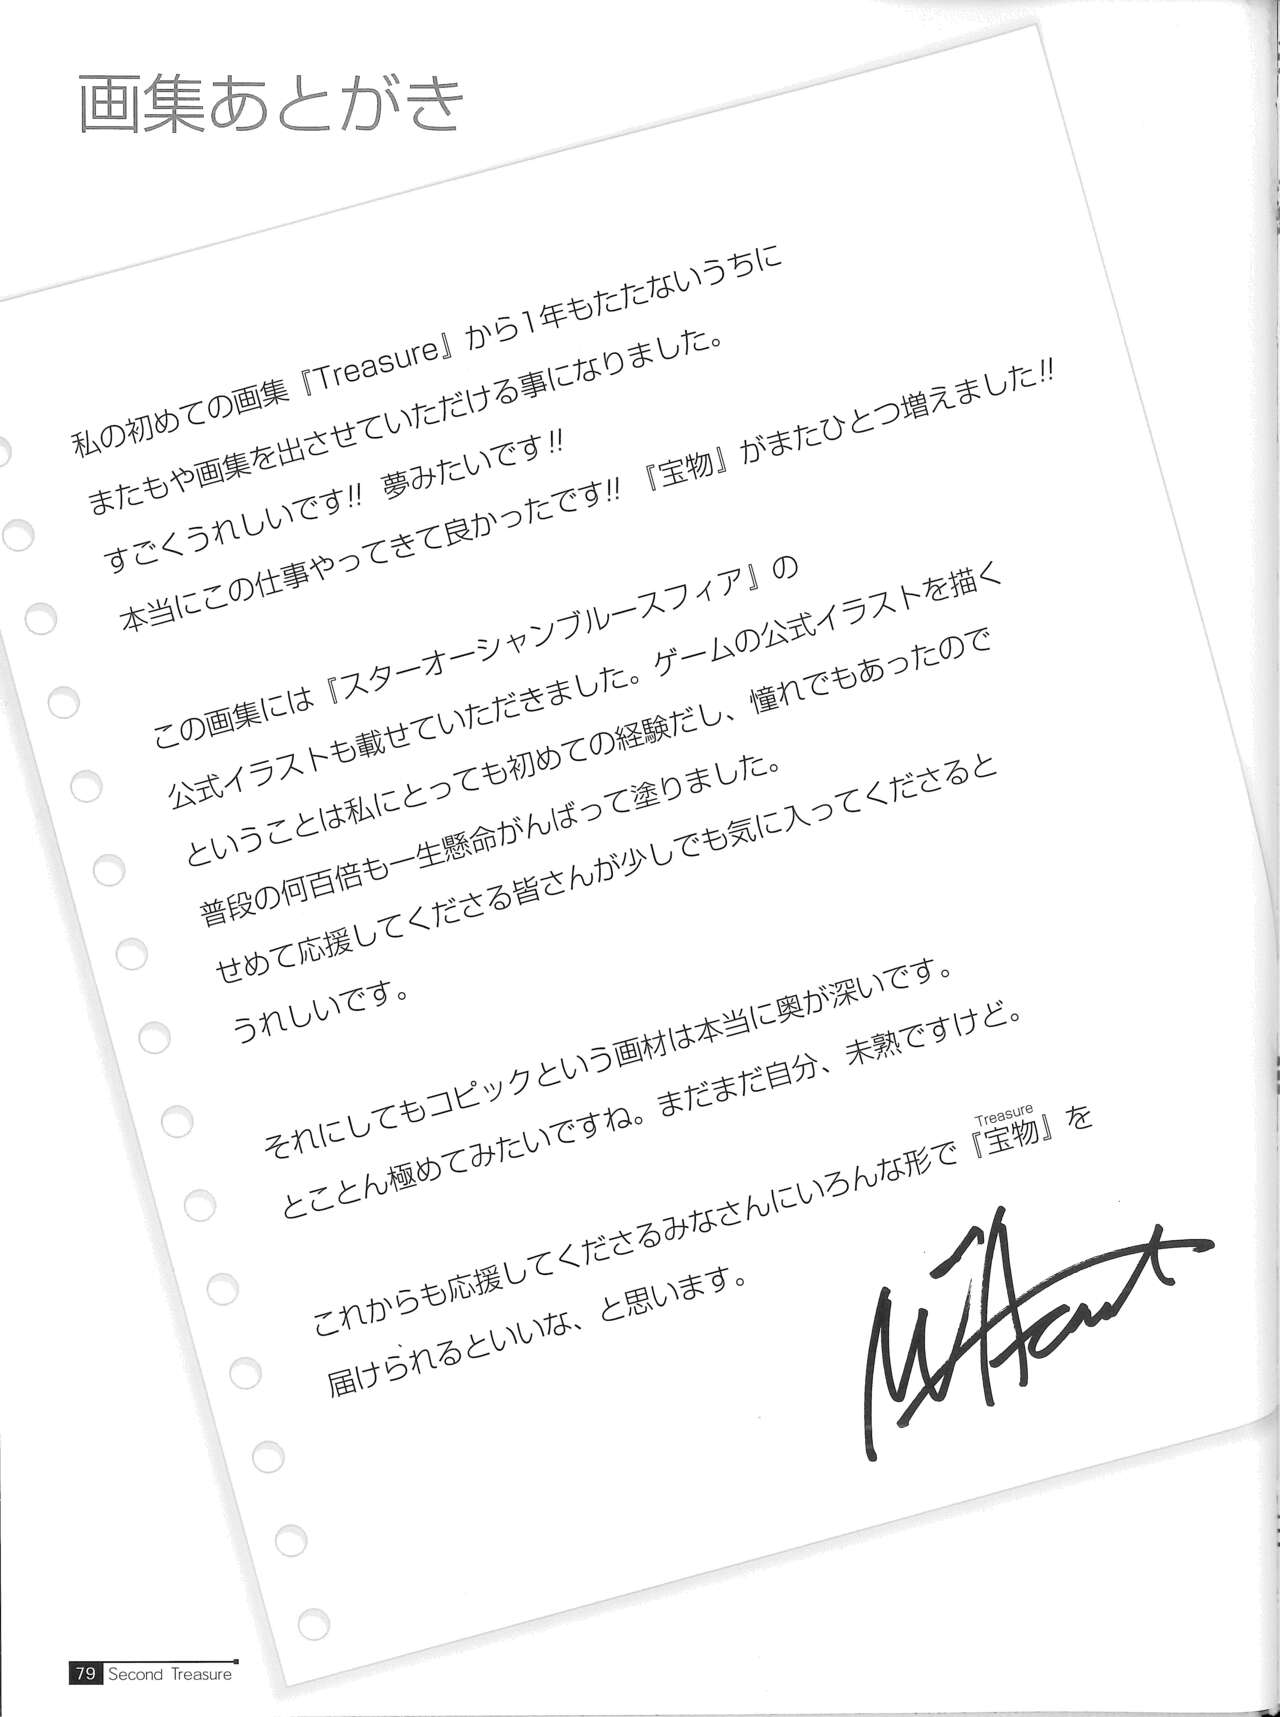 画集あとがき
私の初めての画集『Treasure』から1年もたたないうちに
またもや画集を出させていただける事になりました。
すごくうれしいです!! 夢みたいです!!
本当にこの仕事やってきて良かったです!! 『宝物』がまたひとつ増えました!!
この画集には『スターオーシャンブルースフィア』の
公式イラストも載せていただきました。ゲームの公式イラストを描く
ということは私にとっても初めての経験だし、憧れでもあったので
普段の何百倍も一生懸命がんばって塗りました。
せめて応援してくださる皆さんが少しでも気に入ってくださると
うれしいです。
それにしてもコピックという画材は本当に奥が深いです。
とことん極めてみたいですね。まだまだ自分、未熟ですけど。
Treasure
これからも応援してくださるみなさんにいろんな形で『宝物』を
届けられるといいな、と思います。
79 Second Treasure